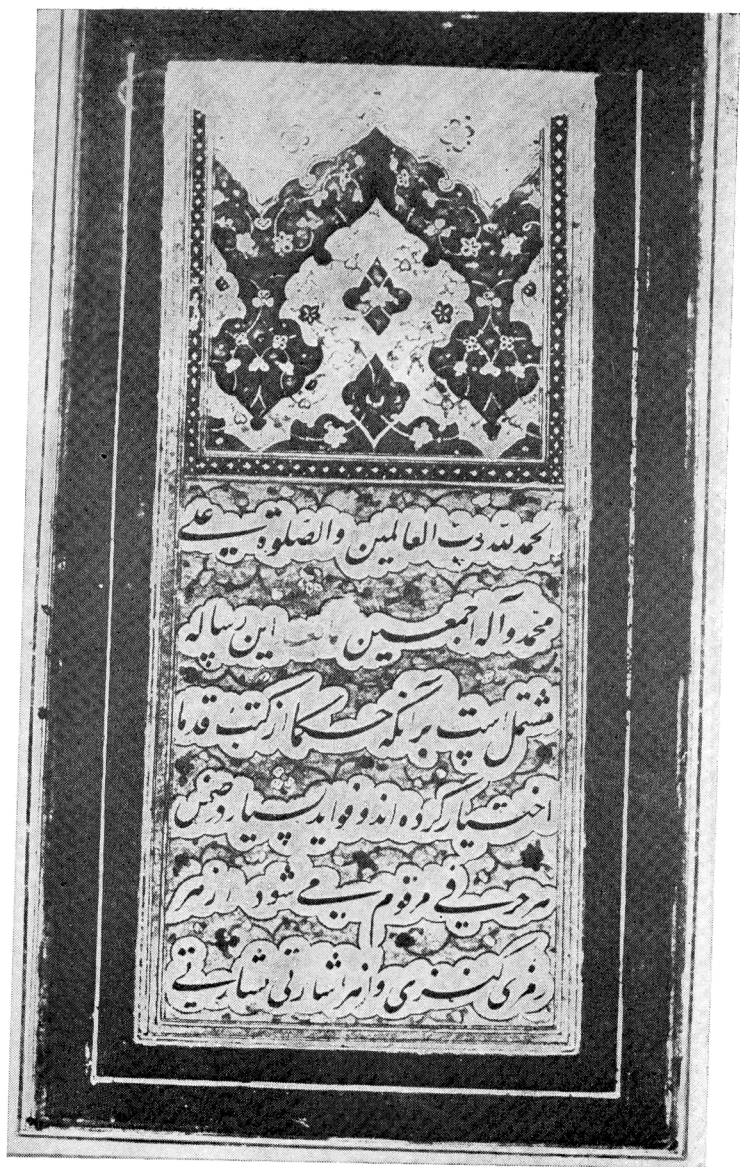 الحمد لله رب العالمین والصلوة علی
محمد وآله اجمعین این رساله
مشتمل است بر آنکه حکما از کتب قدما
اختیار کرده اند و فواید بسیار در ضمن
هر حرفی مرقوم می شود از هر
رمزی کنزی و از هر اشارتی بشارتی